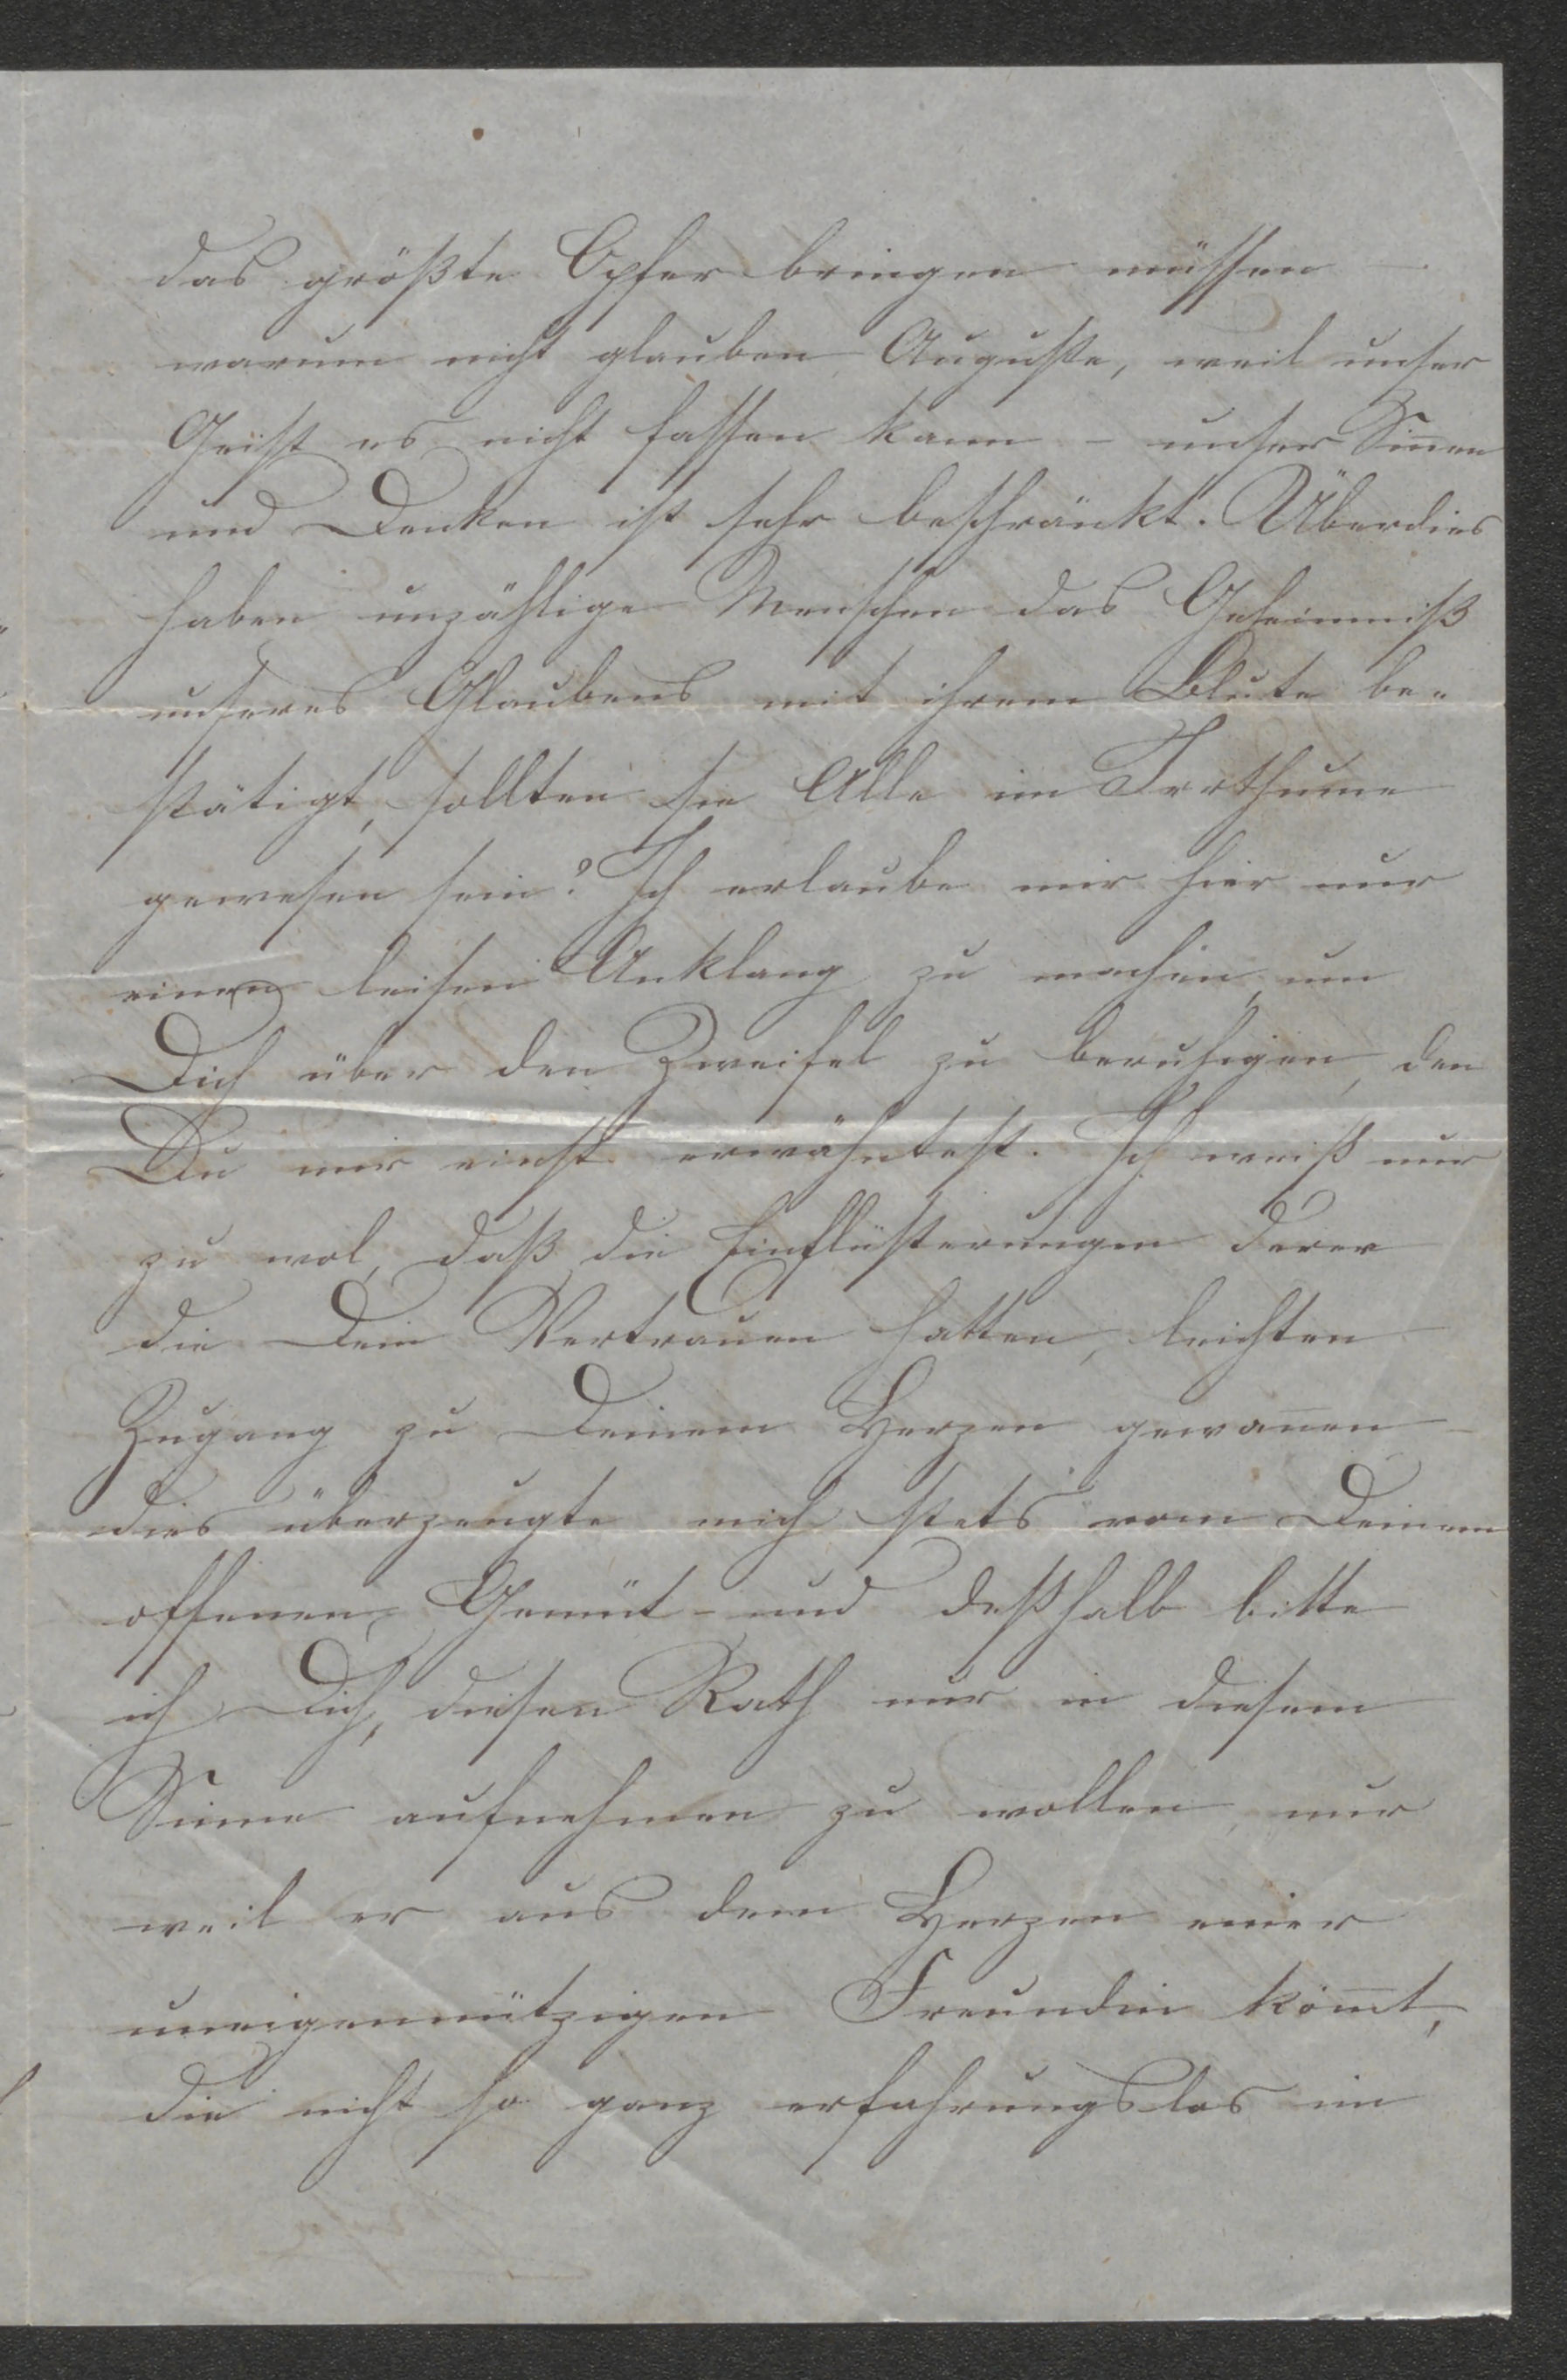 das größte Opfer bringen müssen —
warum nicht glauben Auguste, weil unser
Geist es nicht fassen kann – unser Sin̄en
und Denken ist sehr beschränkt. Überdies
haben unzählige Menschen das Geheimniß
unseres Glaubens mit ihrem Blute be-
stätigt, sollten sie Alle im Irrthume
gewesen sein? Ich erlaube mir hier nur
einen leisen Anklang zu machen, um
Dich über den Zweifel zu beruhigen, den
Du mir einst erwähntest. Ich weiß nur
zu wol, daß die Einflüsterungen derer
die Dein Vertrauen hatten, leichten
Zugang zu Deinem Herzen gewan̄en –
dies überzeugte mich stets vom Deinem
offenen Gemüt – und deßhalb bitte
ich Dich, diesen Rath nur in diesem
Sinne aufnehmen zu wollen, nur
weil er aus dem Herzen einer
uneigennützigen Freundin kom̄t,
die nicht so ganz erfahrungslos im